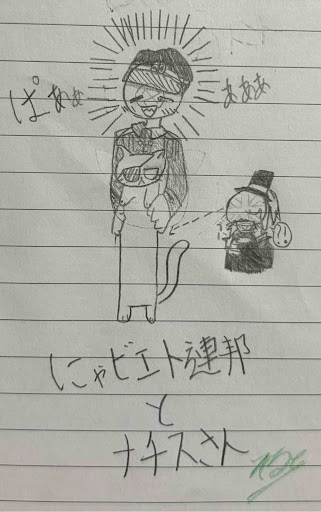 ぱぁぁ
まぁぁ
にゃビエト連邦
と
ナチスさん